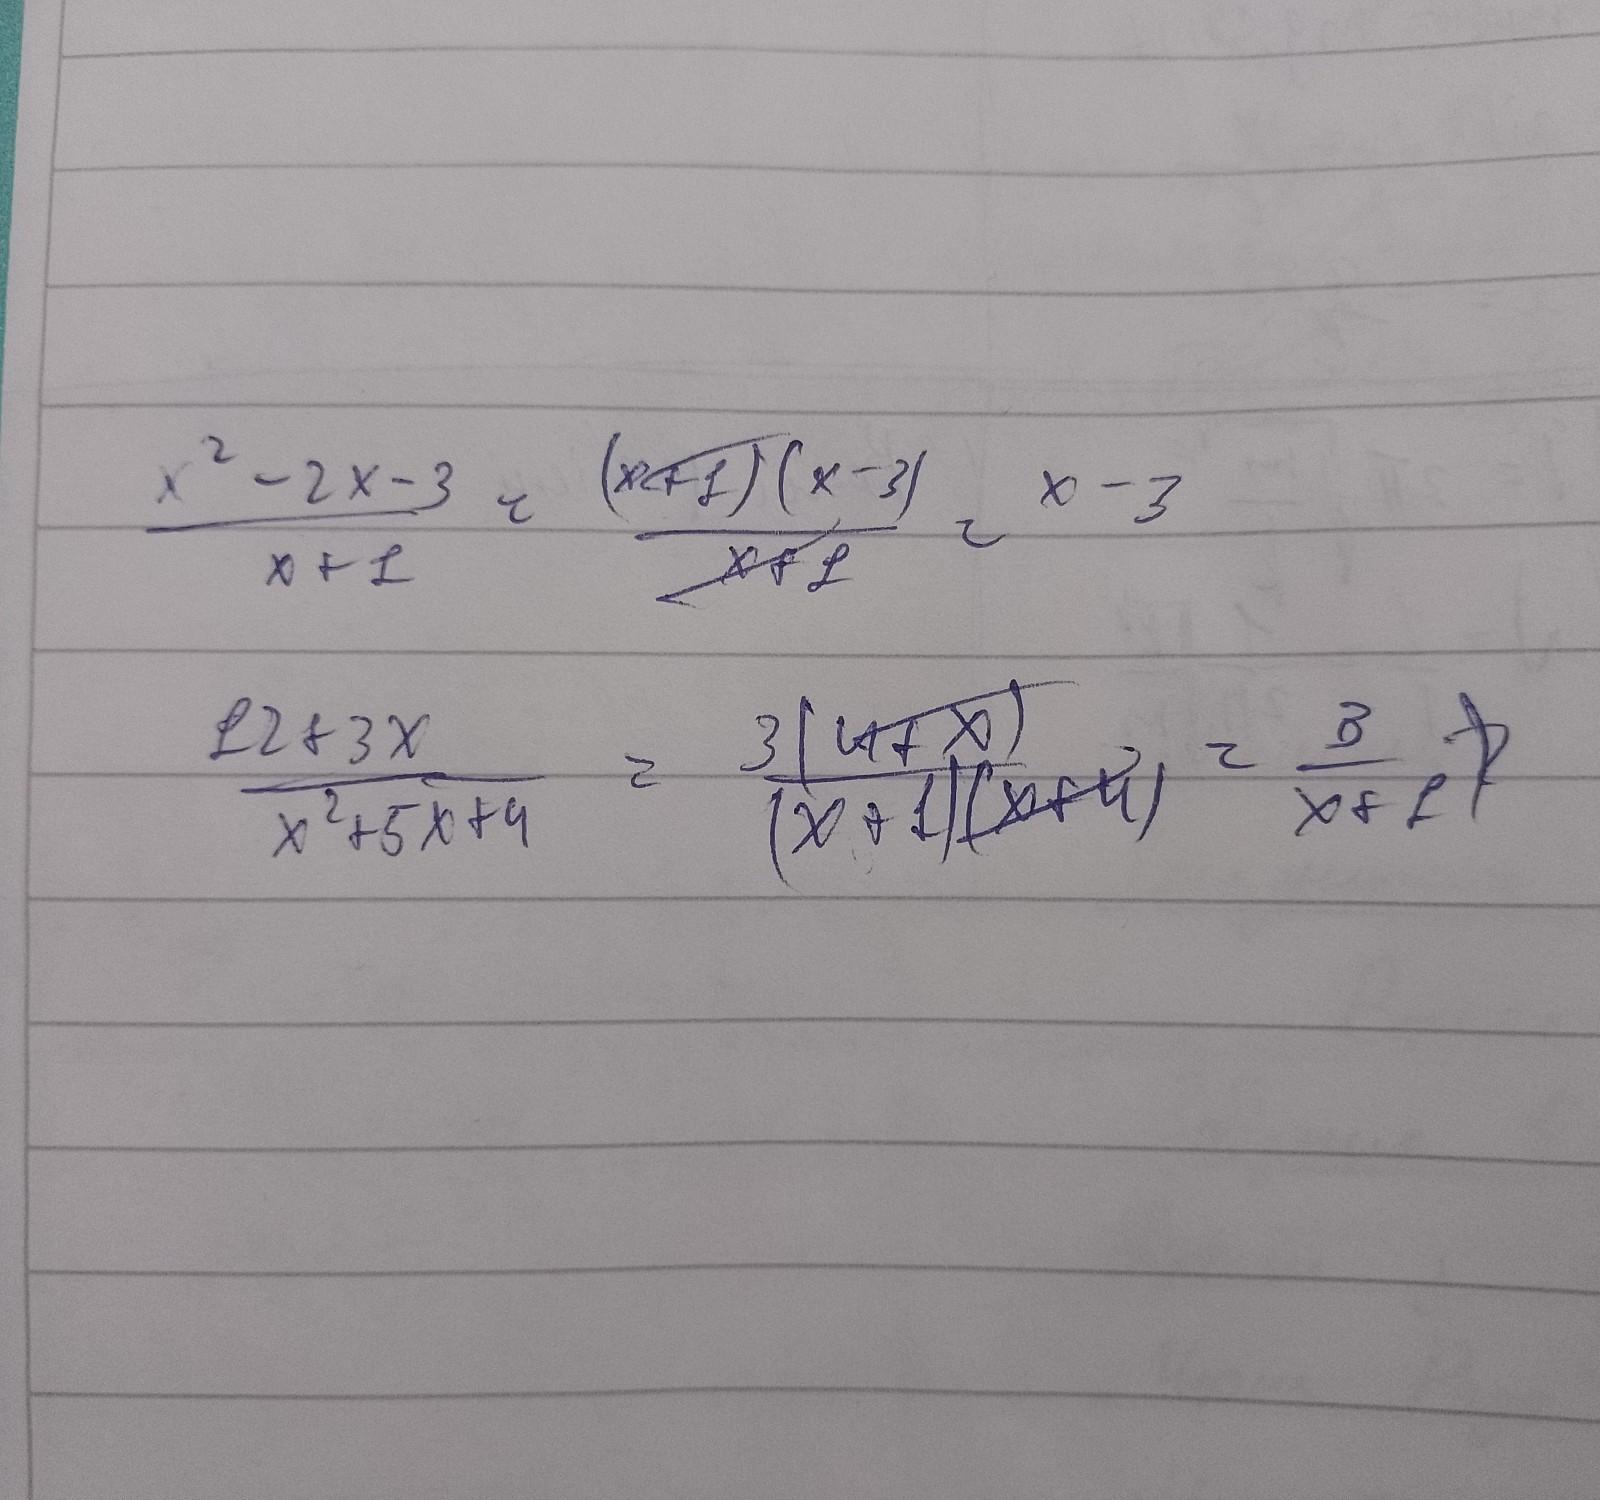 x² - 2x - 3 / x + 1 = (x + 1)(x - 3) / x + 1 = x - 3
12 + 3x / x² + 5x + 4 = 3(4 + x) / (x + 1)(x + 4) = 3 / x + 1